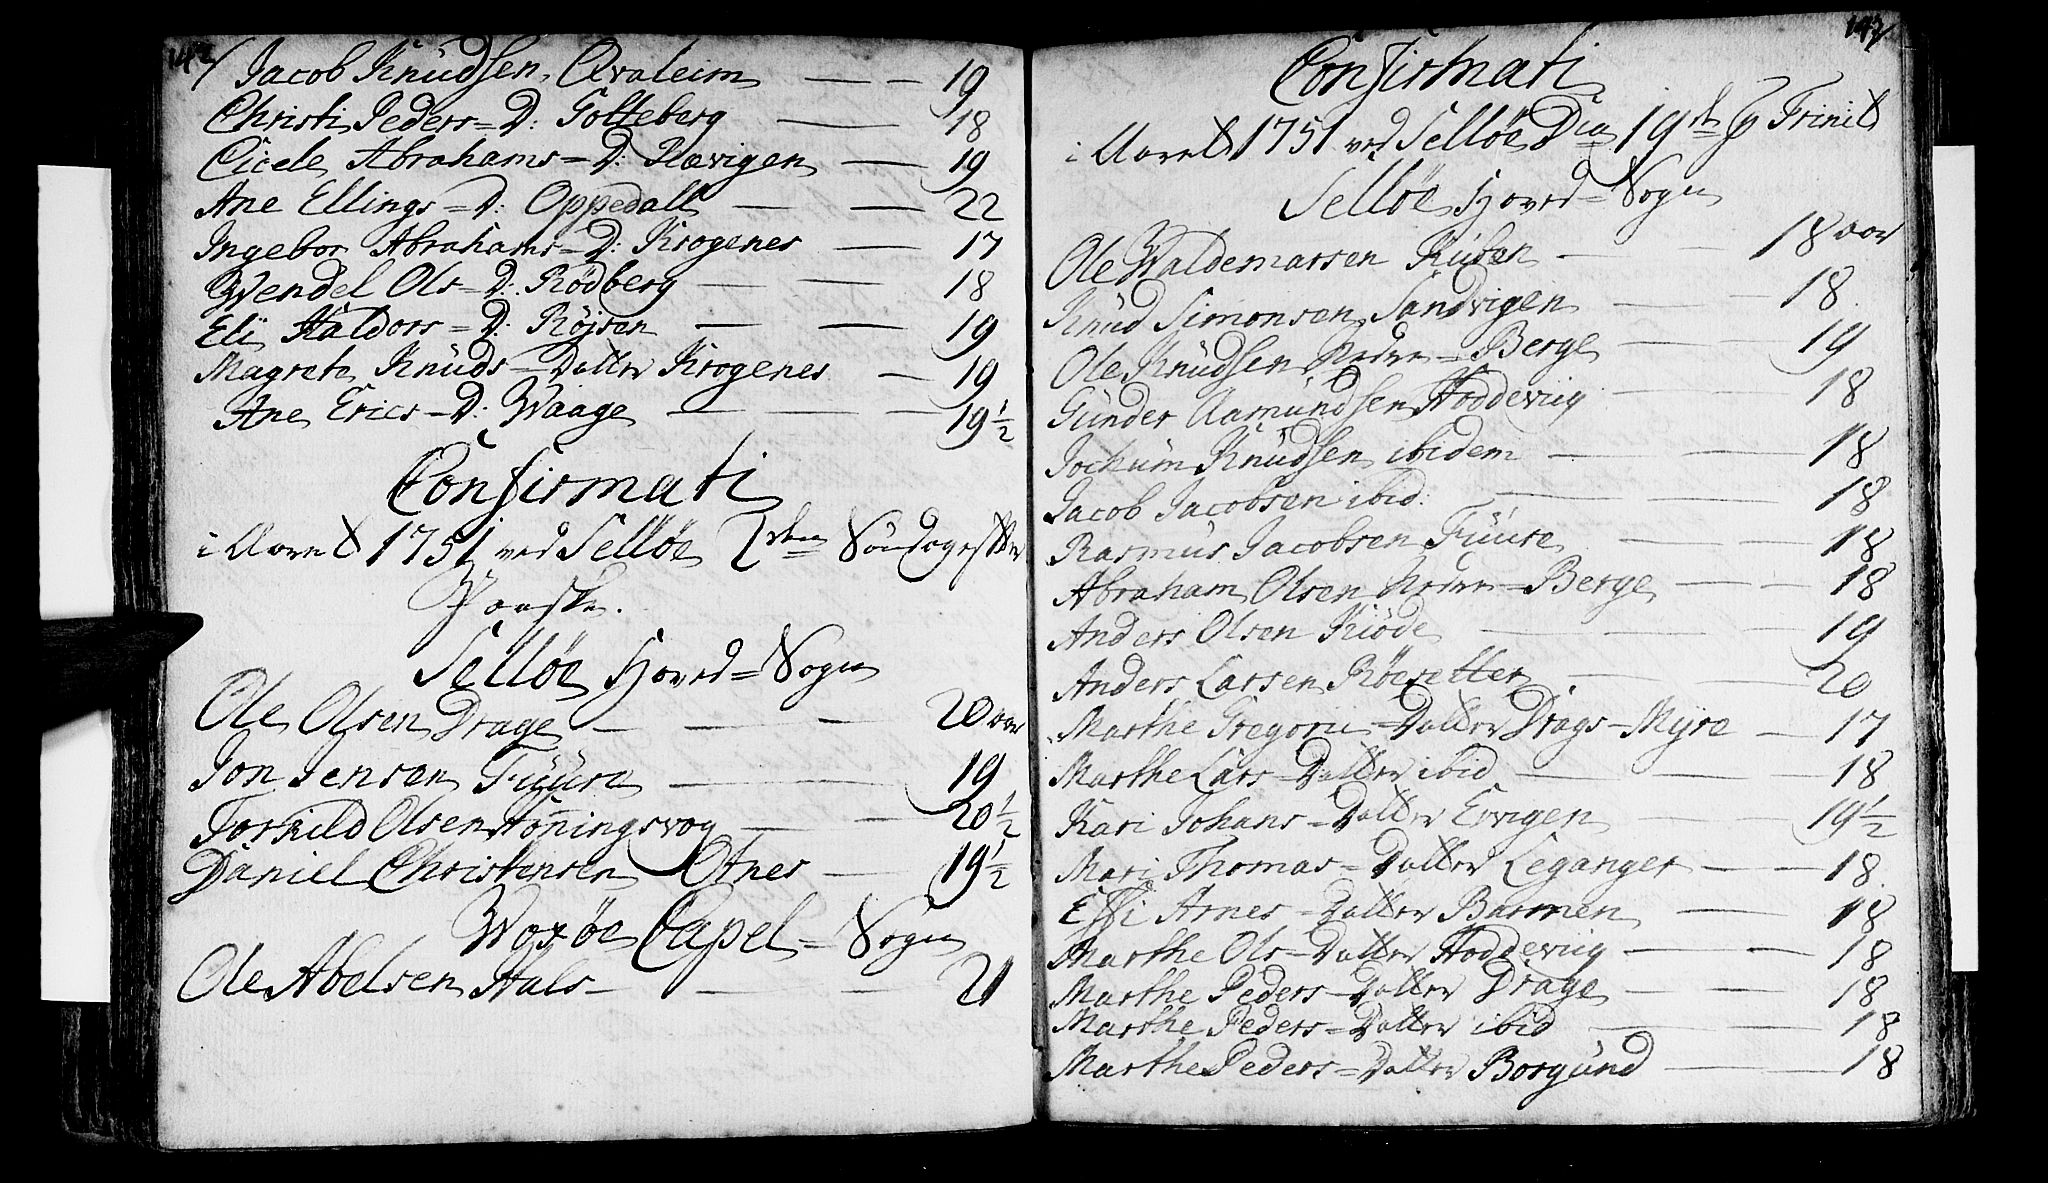 142
Jacob Knudsen Qvaleim — — 19
Christi Peders=D: Golteberg — — 18
Cicele Abrahams=D: Rævigen — 19
Ane Ellings=D: Oppedall — — 22
Ingebor Abrahams=D: Krogenes — 17
Wendel Ols=D: Rödberg — — 18
Eli Haldors=D: Röjsen — — 19
Magrete Knuds=Datter Krogenes — 19
Ane Erics=D: Waage — — 19 1/2
Confirmati
i Aaret 1751 ved Selløe 2den Søndag efter
Paaske.
Selløe Hoved=Sogn
Ole Olsen Drage — — — 20 aar
Jon Jensen Fuure — — 19
Torkild Olsen Honningsvog — — 20 1/2
Daniel Christensen Otnes — 19 1/2
Woxøe Capel=Sogn
Ole Abelsen Hals — — — 21
143
Confirmati
i Aaret 1751 ved Selløe Dia 19de p Trinit
Selløe Hoved=Sogn
Ole Waldemarsen — — 18 aar
Knud Simonsen Sandvigen — — 18.
Ole Knudsen Nedre=Berge — — 19
Gunder Aamundsen Hoddeviig — — 18
Jochum Knudsen ibidem — — 18
Jacob Jacobsen ibid: — — 18
Rasmus Jacobsen Fuure — — 18
Abraham Olsen Nedre=Berge — — 18
Anders Olsen Kiøde — — — 19
Anders Larsen Röesetter — — 20
Marthe Gregorii=Datter Drags=Myre — 17
Marthe Lars=Datter ibid — — 18
Kari Johans=Datter Ervigen — — 19 1/2
Mari Thomas=Datter Leganger — — 18.
Arnes=Datter Barmen — — 18
Marthe Ols=Datter Hoddeviig — — 18
Marthe Peders=Datter Drage — — 18
Marthe Peders=Datter ibid — — 18
Marthe Peders=Datter Borgund — — 18